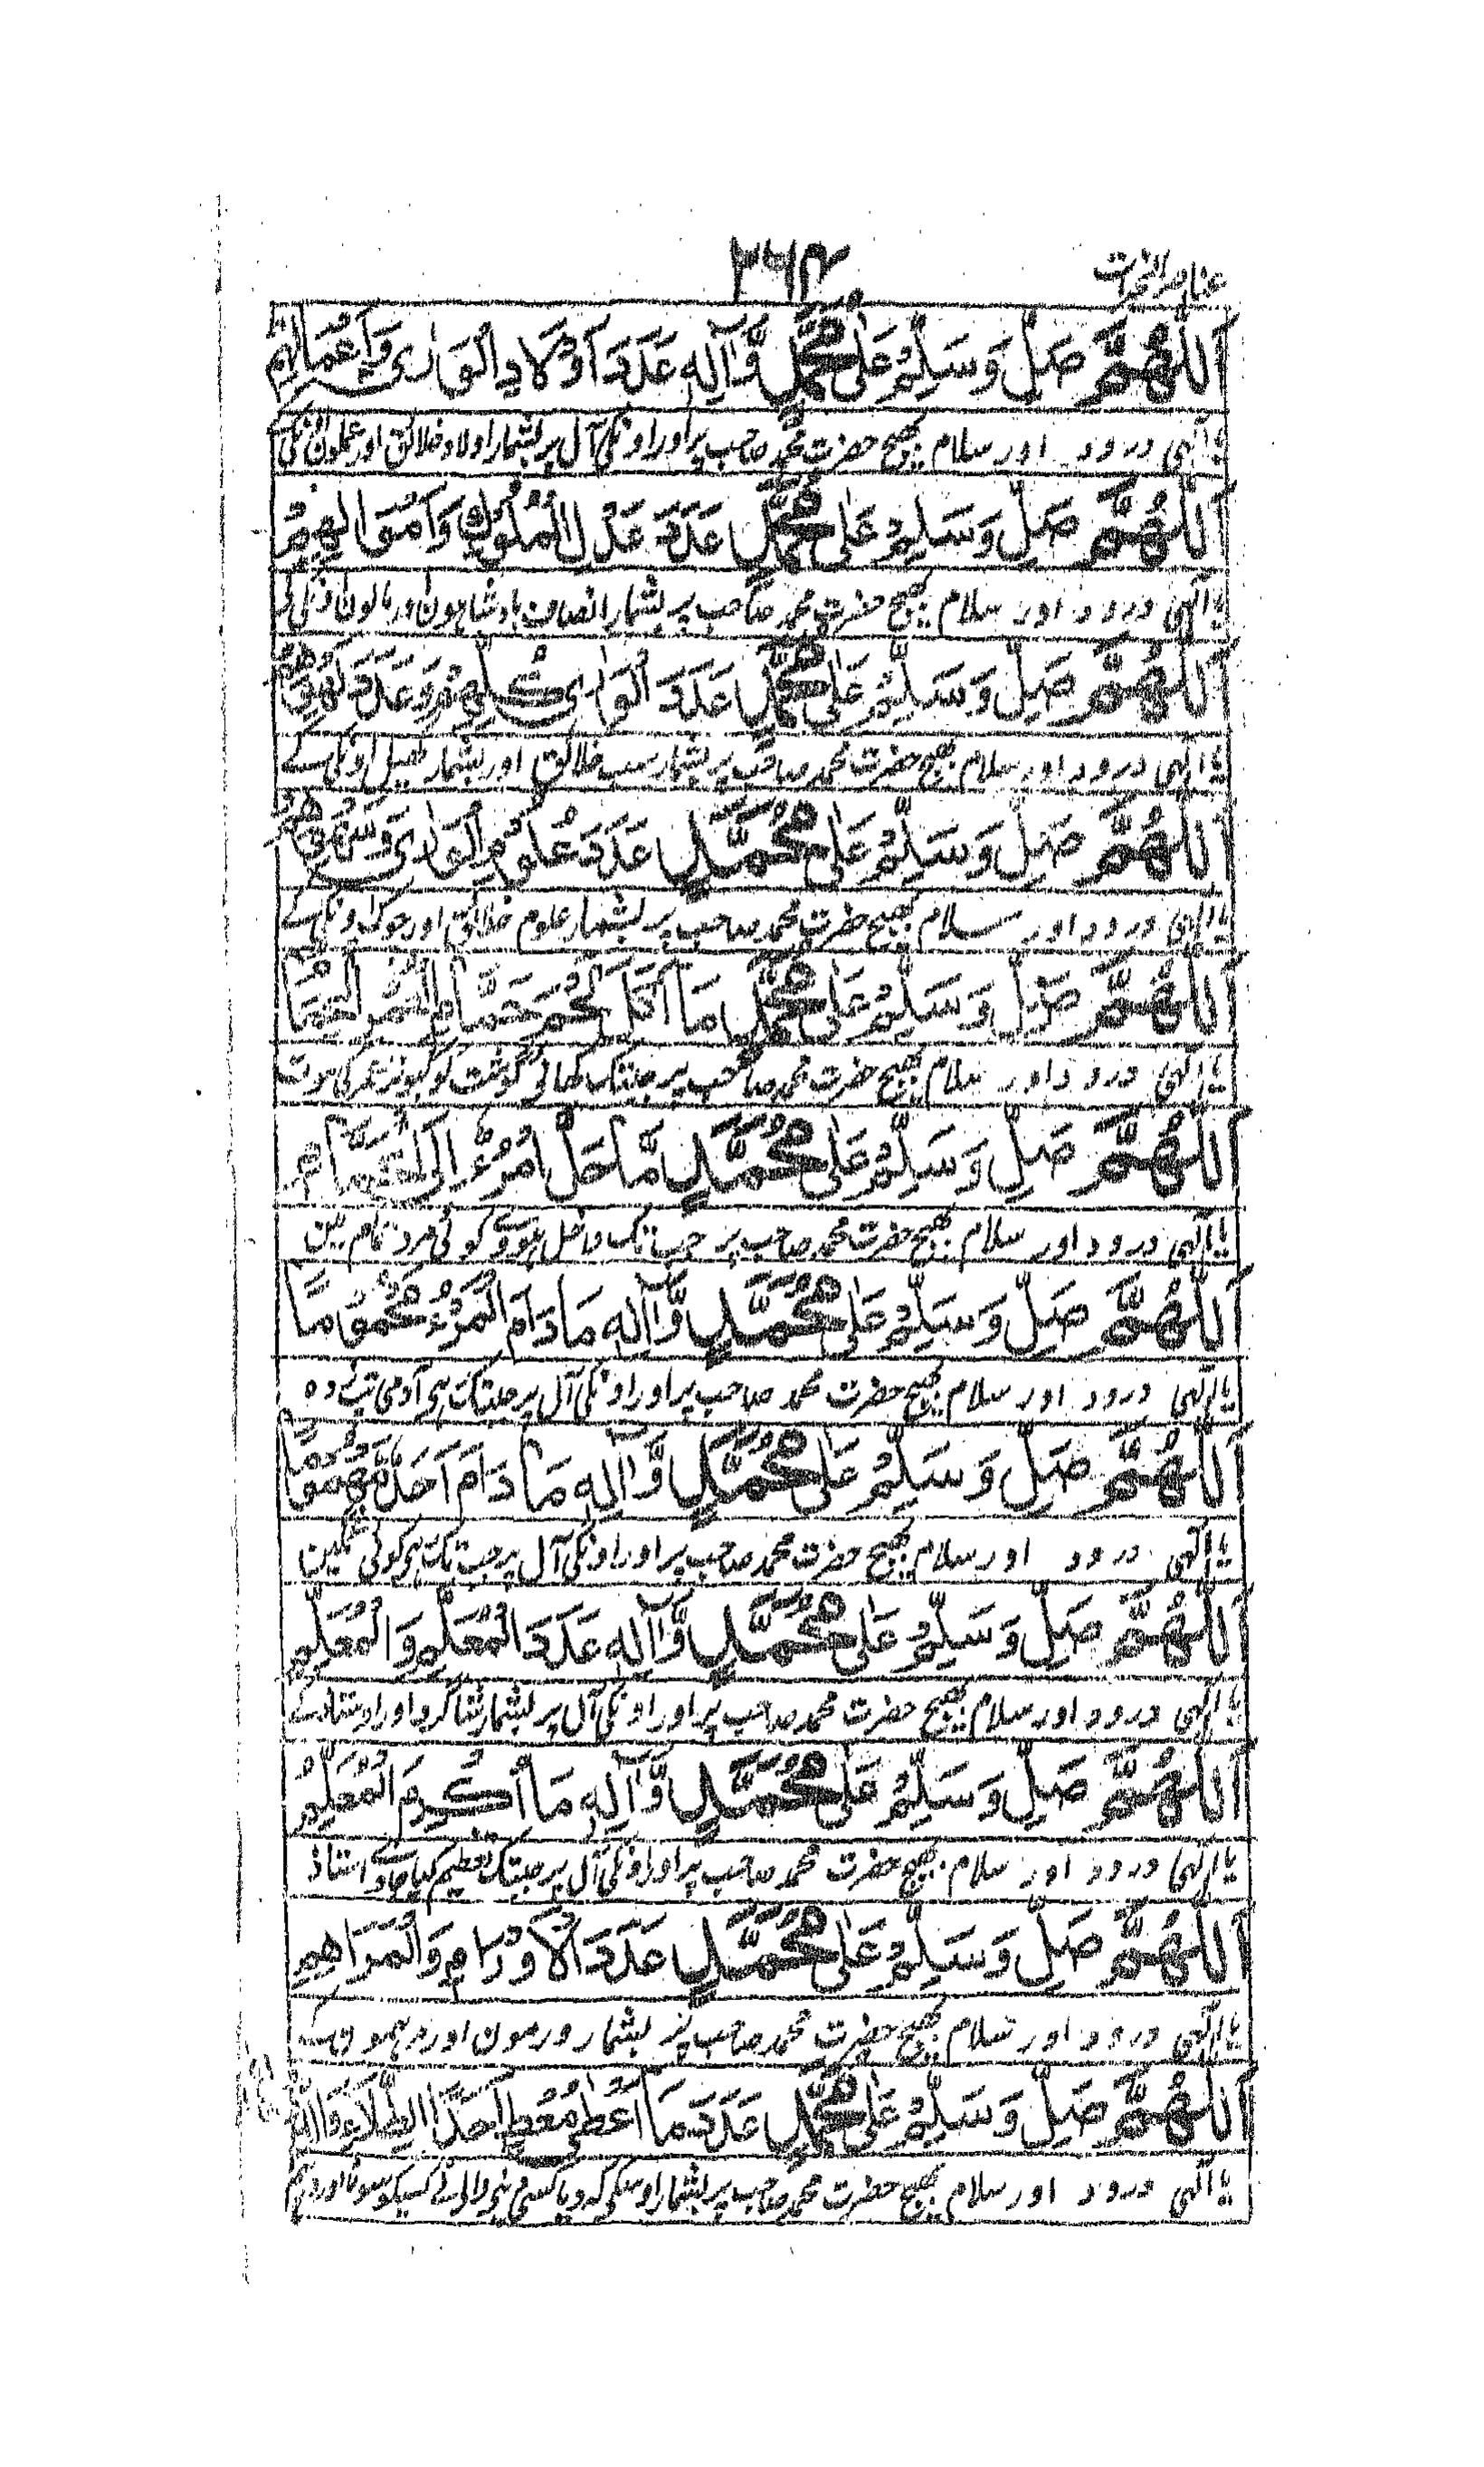 عناصر الخیرات
۳۶۴
اَللّٰهُمَّ صَلِّ وَسَلِّمْ عَلٰی مُحَمَّدٍ وَّاٰلِهٖ عَدَدَ اَوْلَادِ الْوَارٰی وَاَعْمَالِهِمْ
یا الٰہی درود اور سلام بھیج حضرت محمد صاحب پر اور اونکی آل پر بشمار اولاد خلائق اور عملون اونکی کے
اَللّٰهُمَّ صَلِّ وَسَلِّمْ عَلٰی مُحَمَّدٍ عَدَدَ عَدْلِ الْمُلُوْكِ وَاَمْوَالِهِمْ
یا الٰہی درود اور سلام بھیج حضرت محمد صاحب پر بشمار انصاف بادشاہون اور مالون اونکی کی
اَللّٰهُمَّ صَلِّ وَسَلِّمْ عَلٰی مُحَمَّدٍ عَدَدَ الْوَارٰی كُلِّهِمْ وَعَدَدَ لَهْوِهِمْ
یا الٰہی درود اور سلام بھیج حضرت محمد صاحب پر بشمار سب خلائق اور بشمار کھیل اونکی کے
اَللّٰهُمَّ صَلِّ وَسَلِّمْ عَلٰی مُحَمَّدٍ عَدَدَ عُلُوْمِ الْوَارٰی وَسَهْوِهِمْ
یا الٰہی درود اور سلام بھیج حضرت محمد صاحب پر بشمار علوم خلائق اور چوک اونکی کے
اَللّٰهُمَّ صَلِّ وَسَلِّمْ عَلٰی مُحَمَّدٍ مَا اَكَلَ لَحْمَ حَمَامٍ
یا الٰہی درود اور سلام بھیج حضرت محمد صاحب پر جبتک کھائے گوشت کبوتر
اَللّٰهُمَّ صَلِّ وَسَلِّمْ عَلٰی مُحَمَّدٍ مَّا حَلَّ امْرُءٌ اِلَی
یا الٰہی درود اور سلام بھیج حضرت محمد صاحب پر جب تک داخل ہووے کوئی مرد حمام مین
اَللّٰهُمَّ صَلِّ وَسَلِّمْ عَلٰی مُحَمَّدٍ وَّاٰلِهٖ مَا دَامَ الْمَرْءُ مَحْمُوْمًا
یا الٰہی درود اور سلام بھیج حضرت محمد صاحب پر اور اونکی آل پر جبتک ہی آدمی تپ زدہ
اَللّٰهُمَّ صَلِّ وَسَلِّمْ عَلٰی مُحَمَّدٍ وَّاٰلِهٖ مَا دَامَ اَحَدٌ مَّهْمُوْمًا
یا الٰہی درود اور سلام بھیج حضرت محمد صاحب پر اور اونکی آل پر جب تک ہی کوئی غمگین
اَللّٰهُمَّ صَلِّ وَسَلِّمْ عَلٰی مُحَمَّدٍ وَّاٰلِهٖ عَدَدَ الْمُتَعَلِّمِ وَالْمُعَلِّمِ
یا الٰہی درود اور سلام بھیج حضرت محمد صاحب پر اور اونکی آل پر بشمار شاگرد اور اوستاد کے
اَللّٰهُمَّ صَلِّ وَسَلِّمْ عَلٰی مُحَمَّدٍ وَّاٰلِهٖ مَا اُكْرِمَ الْمُعَلِّمُ
یا الٰہی درود اور سلام بھیج حضرت محمد صاحب پر اور اونکی آل پر جبتک تعظیم کیا جاوے استاذ
اَللّٰهُمَّ صَلِّ وَسَلِّمْ عَلٰی مُحَمَّدٍ عَدَدَ الْاَوْرَامِ وَالْمَرَاهِمِ
یا الٰہی درود اور سلام بھیج حضرت محمد صاحب پر بشمار ورمون اور مرہمون کے
اَللّٰهُمَّ صَلِّ وَسَلِّمْ عَلٰی مُحَمَّدٍ عَدَدَ مَا اَعْطٰی مُعْطٍ اَحَدًا
یا الٰہی درود اور سلام بھیج حضرت محمد صاحب پر بشمار اوسکی کہ دیا کسی دینی والی نے کسیکو سونا اور درہم